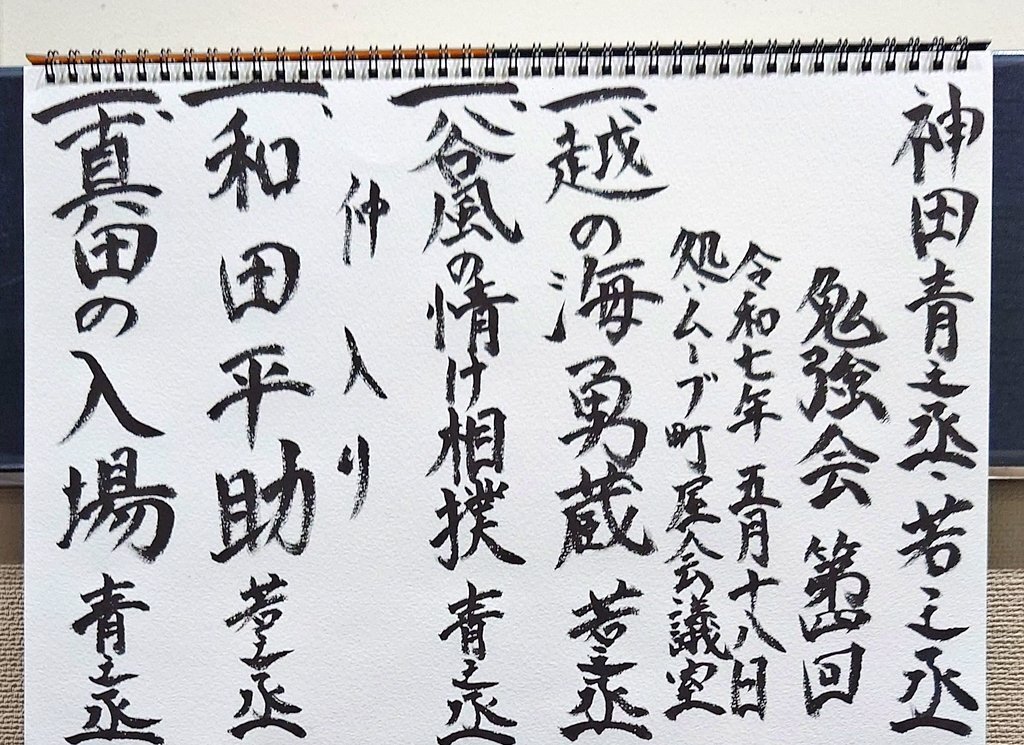 神田青之丞・若之丞
勉強会 第四回
令和七年 五月十八日
処・ムーブ町屋会議室
一、越の海勇蔵 若之丞
一、谷風の情け相撲 青之丞
仲入り
一、和田平助 若之丞
一、真田の入場 青之丞